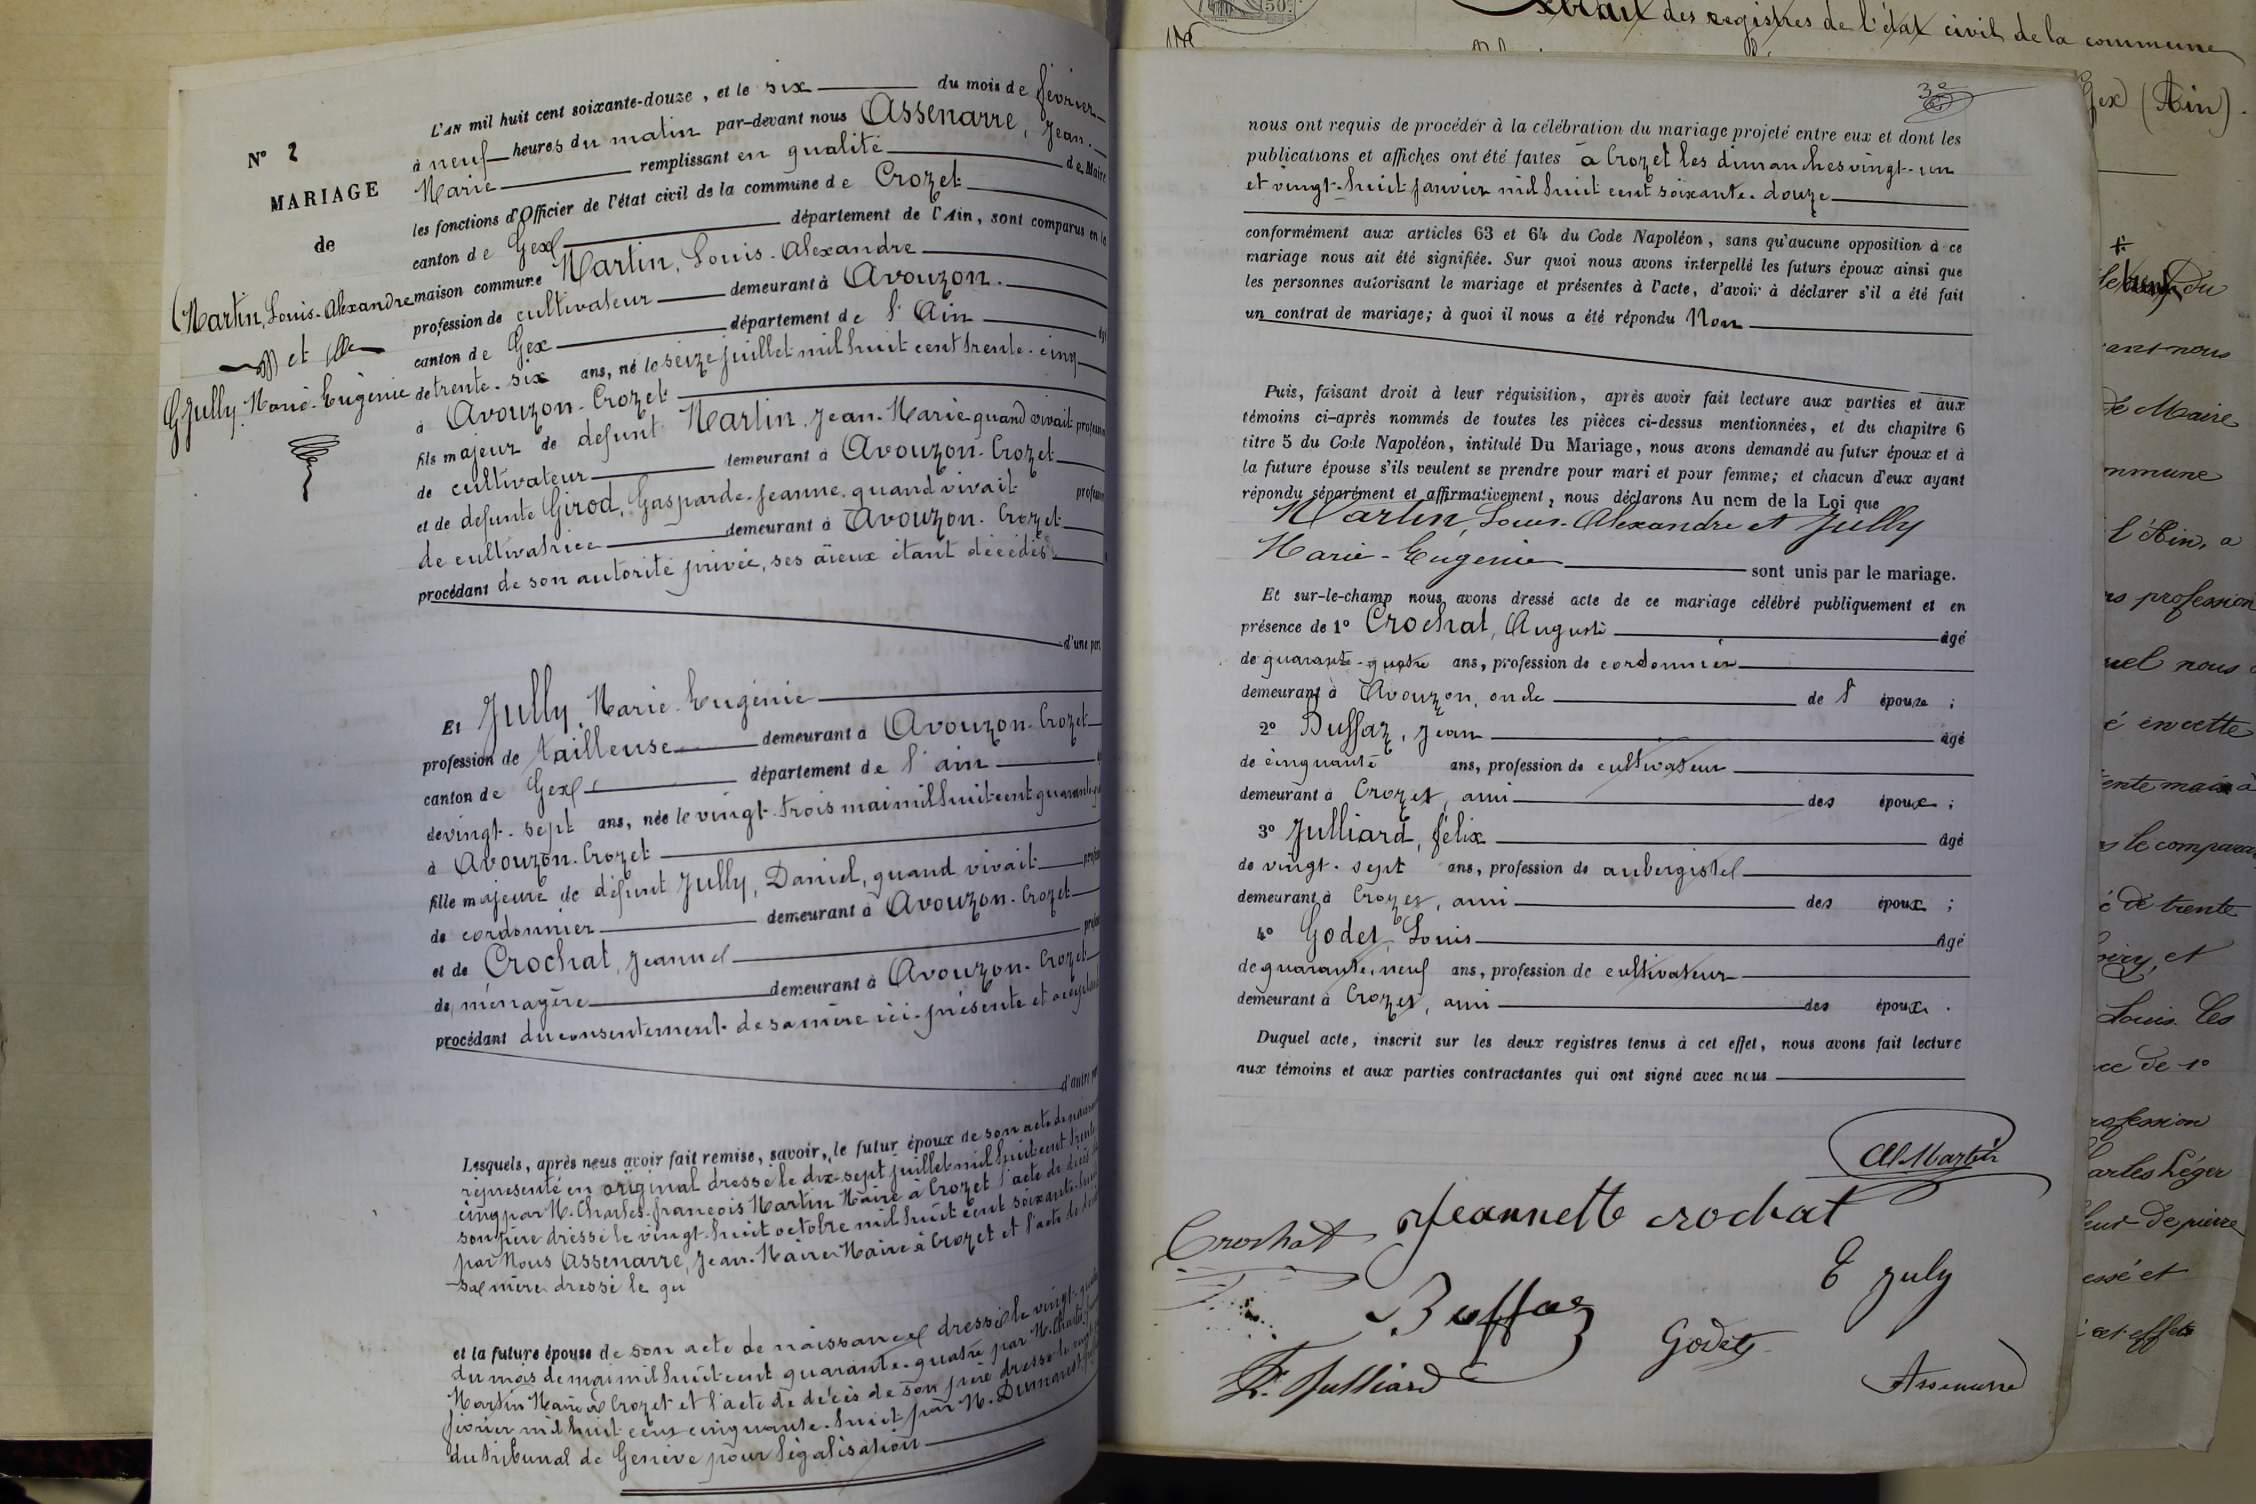 N° 2
MARIAGE
de
Martin, Louis-Alexandre
et
Jully Marie-Eugénie
L'AN mil huit cent soixante-douze, et le six du mois de février
à neuf heures du matin par-devant nous Assenarre, Jean-
Marie remplissant en qualité de Maire
les fonctions d'Officier de l'état civil de la commune de Crozet
canton de Gex département de l'Ain, sont comparus en la
maison commune Martin, Louis-Alexandre
profession de cultivateur demeurant à Avouzon.
canton de Gex département de l'Ain
de trente-six ans, né le seize juillet mil huit cent trente-cinq
à Avouzon-Crozet
fils majeur de défunt Martin, Jean-Marie quand vivait profession
de cultivateur demeurant à Avouzon-Crozet
et de défunte Girod, Gasparde-Jeanne, quand vivait profession
de cultivatrice demeurant à Avouzon-Crozet
procédant de son autorité privée, ses aïeux étant décédés
d'une part
Et Jully, Marie-Eugénie
profession de tailleuse demeurant à Avouzon-Crozet
canton de Gex département de l'ain
de vingt-sept ans, née le vingt-trois mai mil huit cent quarante
à Avouzon-Crozet
fille majeure de défunt Jully, Daniel, quand vivait
de cordonnier demeurant à Avouzon-Crozet
et de Crochat, Jeannel
de ménagère demeurant à Avouzon-Crozet
procédant du consentement de sa mère ici-présente et acceptant
d'autre
Lesquels, après nous avoir fait remise, savoir, le futur époux de son acte de
représenté en original dressé le dix-sept juillet mil huit cent trente
cinq par M. Charles-François Martin Maire à Crozet l'acte de décès de
son père dressé le vingt-huit octobre mil huit cent soixante-
par Nous Assenarre, Jean-Marie Maire à Crozet et l'acte de
sa mère dressé le qu
et la future épouse de son acte de naissance dressé le vingt-
du mois de mai mil huit cent quarante-quatre par M. Charles
Martin Maire à Crozet et l'acte de décès de son père dressé le
février mil huit cent cinquante-huit par M.
du tribunal de Genève pour légalisation
nous ont requis de procéder à la célébration du mariage projeté entre eux et dont les
publications et affiches ont été faites à Crozet les dimanches vingt-un
et vingt-huit janvier mil huit cent soixante-douze
conformément aux articles 63 et 64 du Code Napoléon, sans qu'aucune opposition à ce
mariage nous ait été signifiée. Sur quoi nous avons interpellé les futurs époux ainsi que
les personnes autorisant le mariage et présentes à l'acte, d'avoir à déclarer s'il a été fait
un contrat de mariage; à quoi il nous a été répondu Non
Puis, faisant droit à leur réquisition, après avoir fait lecture aux parties et aux
témoins ci-après nommés de toutes les pièces ci-dessus mentionnées, et du chapitre 6
titre 5 du Code Napoléon, intitulé Du Mariage, nous avons demandé au futur époux et à
la future épouse s'ils veulent se prendre pour mari et pour femme; et chacun d'eux ayant
répondu séparément et affirmativement, nous déclarons Au nom de la Loi que
Martin, Louis-Alexandre et Jully
Marie-Eugénie sont unis par le mariage.
Et sur-le-champ nous avons dressé acte de ce mariage célébré publiquement et en
présence de 1° Crochat, Auguste âgé
de quarante-quatre ans, profession de cordonnier
demeurant à Avouzon, oncle de l' épouse ;
2° Buffaz, Jean âgé
de cinquante ans, profession de cultivateur
demeurant à Crozet, ami des époux ;
3° Julliard, félix âgé
de vingt-sept ans, profession de aubergiste
demeurant à Crozet, ami des époux ;
4° Godet, Louis âgé
de quarante-neuf ans, profession de cultivateur
demeurant à Crozet, ami des époux.
Duquel acte, inscrit sur les deux registres tenus à cet effet, nous avons fait lecture
aux témoins et aux parties contractantes qui ont signé avec nous
Al Martin
Jeannette crochat
Crochat
E July
Buffaz
Godet
F. Julliard
Assenarre
Extrait des registres de l'état civil de la commune
Gex (Ain).
du
nous
de Maire
l'Ain, a
profession
nous
en cette
le
de trente
et
Louis. Les
de 1°
Léger
de pierre
et
effet